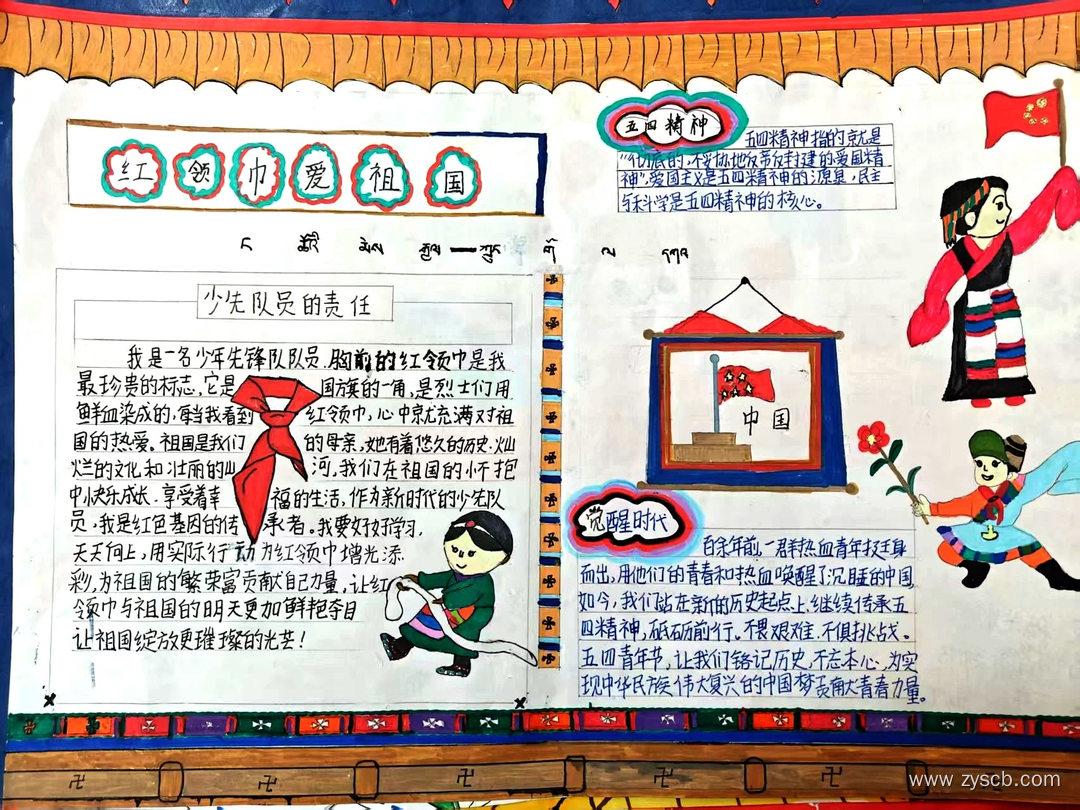 红领巾爱祖国
少先队员的责任
我是一名少年先锋队队员,胸前的红领巾是我
最珍贵的标志,它是国旗的一角,是烈士们用
鲜血染成的,每当我看到红领巾,心中就充满对祖
国的热爱。祖国是我们的母亲,她有着悠久的历史.灿
烂的文化和壮丽的山河,我们在祖国的怀抱
中快乐成长.享受着幸福的生活,作为新时代的少先队
员,我是红色基因的传承者。我要好好学习,
天天向上,用实际行动为红领巾增光添
彩,为祖国的繁荣富贡献自己力量,让红
领巾与祖国的明天更加鲜艳夺目
让祖国绽放更璀璨的光芒!
五四精神
五四精神指的就是
"彻底的,不妥协地反帝反封建的爱国精
神",爱国主义是五四精神的源泉,民主
与科学是五四精神的核心。
中国
觉醒时代
百余年前,一群热血青年挺身
而出,用他们的青春和热血唤醒了沉睡的中国
如今,我们站在新的历史起点上,继续传承五
四精神,砥砺前行。不畏艰难,不惧挑战。
五四青年节,让我们铭记历史,不忘本心,为实
现中华民族伟大复兴的中国梦贡献青春力量。
www.zyscb.com